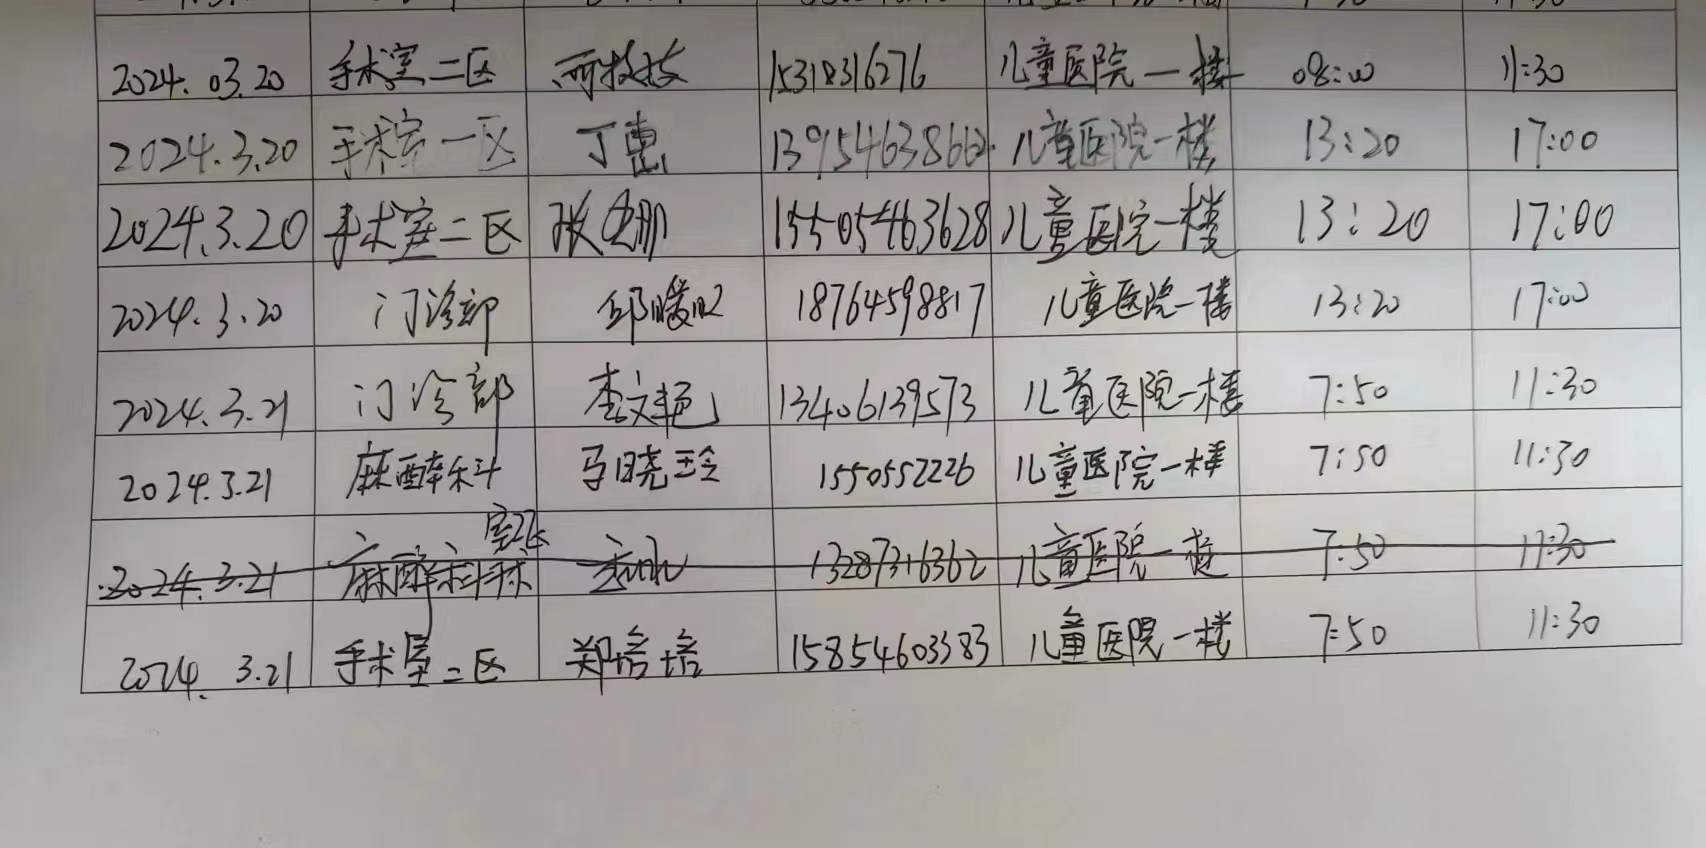 2024.03.20 手术室二区 15318316276 儿童医院一楼 08:00 11:30
2024.3.20 手术室一区 丁惠 13954638662 儿童医院一楼 13:20 17:00
2024.3.20 手术室二区 张 娜 15505463628 儿童医院一楼 13:20 17:00
2024.3.20 门诊部 邱暖 18764598817 儿童医院一楼 13:20 17:00
2024.3.21 门诊部 李文艳 13406139573 儿童医院一楼 7:50 11:30
2024.3.21 麻醉科 马晓玲 1550552226 儿童医院一楼 7:50 11:30
2024.3.21 麻醉科手术室二区 13287316362 儿童医院一楼 7:50 11:30
2024.3.21 手术室二区 郑培培 15854603383 儿童医院一楼 7:50 11:30